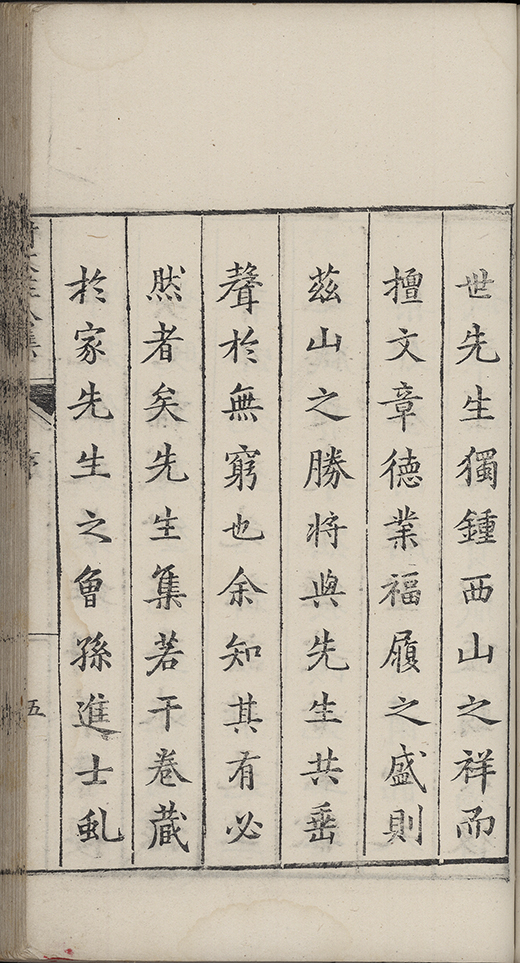 世先生獨鍾西山之祥而
擅文章德業福履之盛則
茲山之勝將與先生共垂
聲於無窮也余知其有必
然者矣先生集若干卷藏
於家先生之曾孫進士虬
序
五